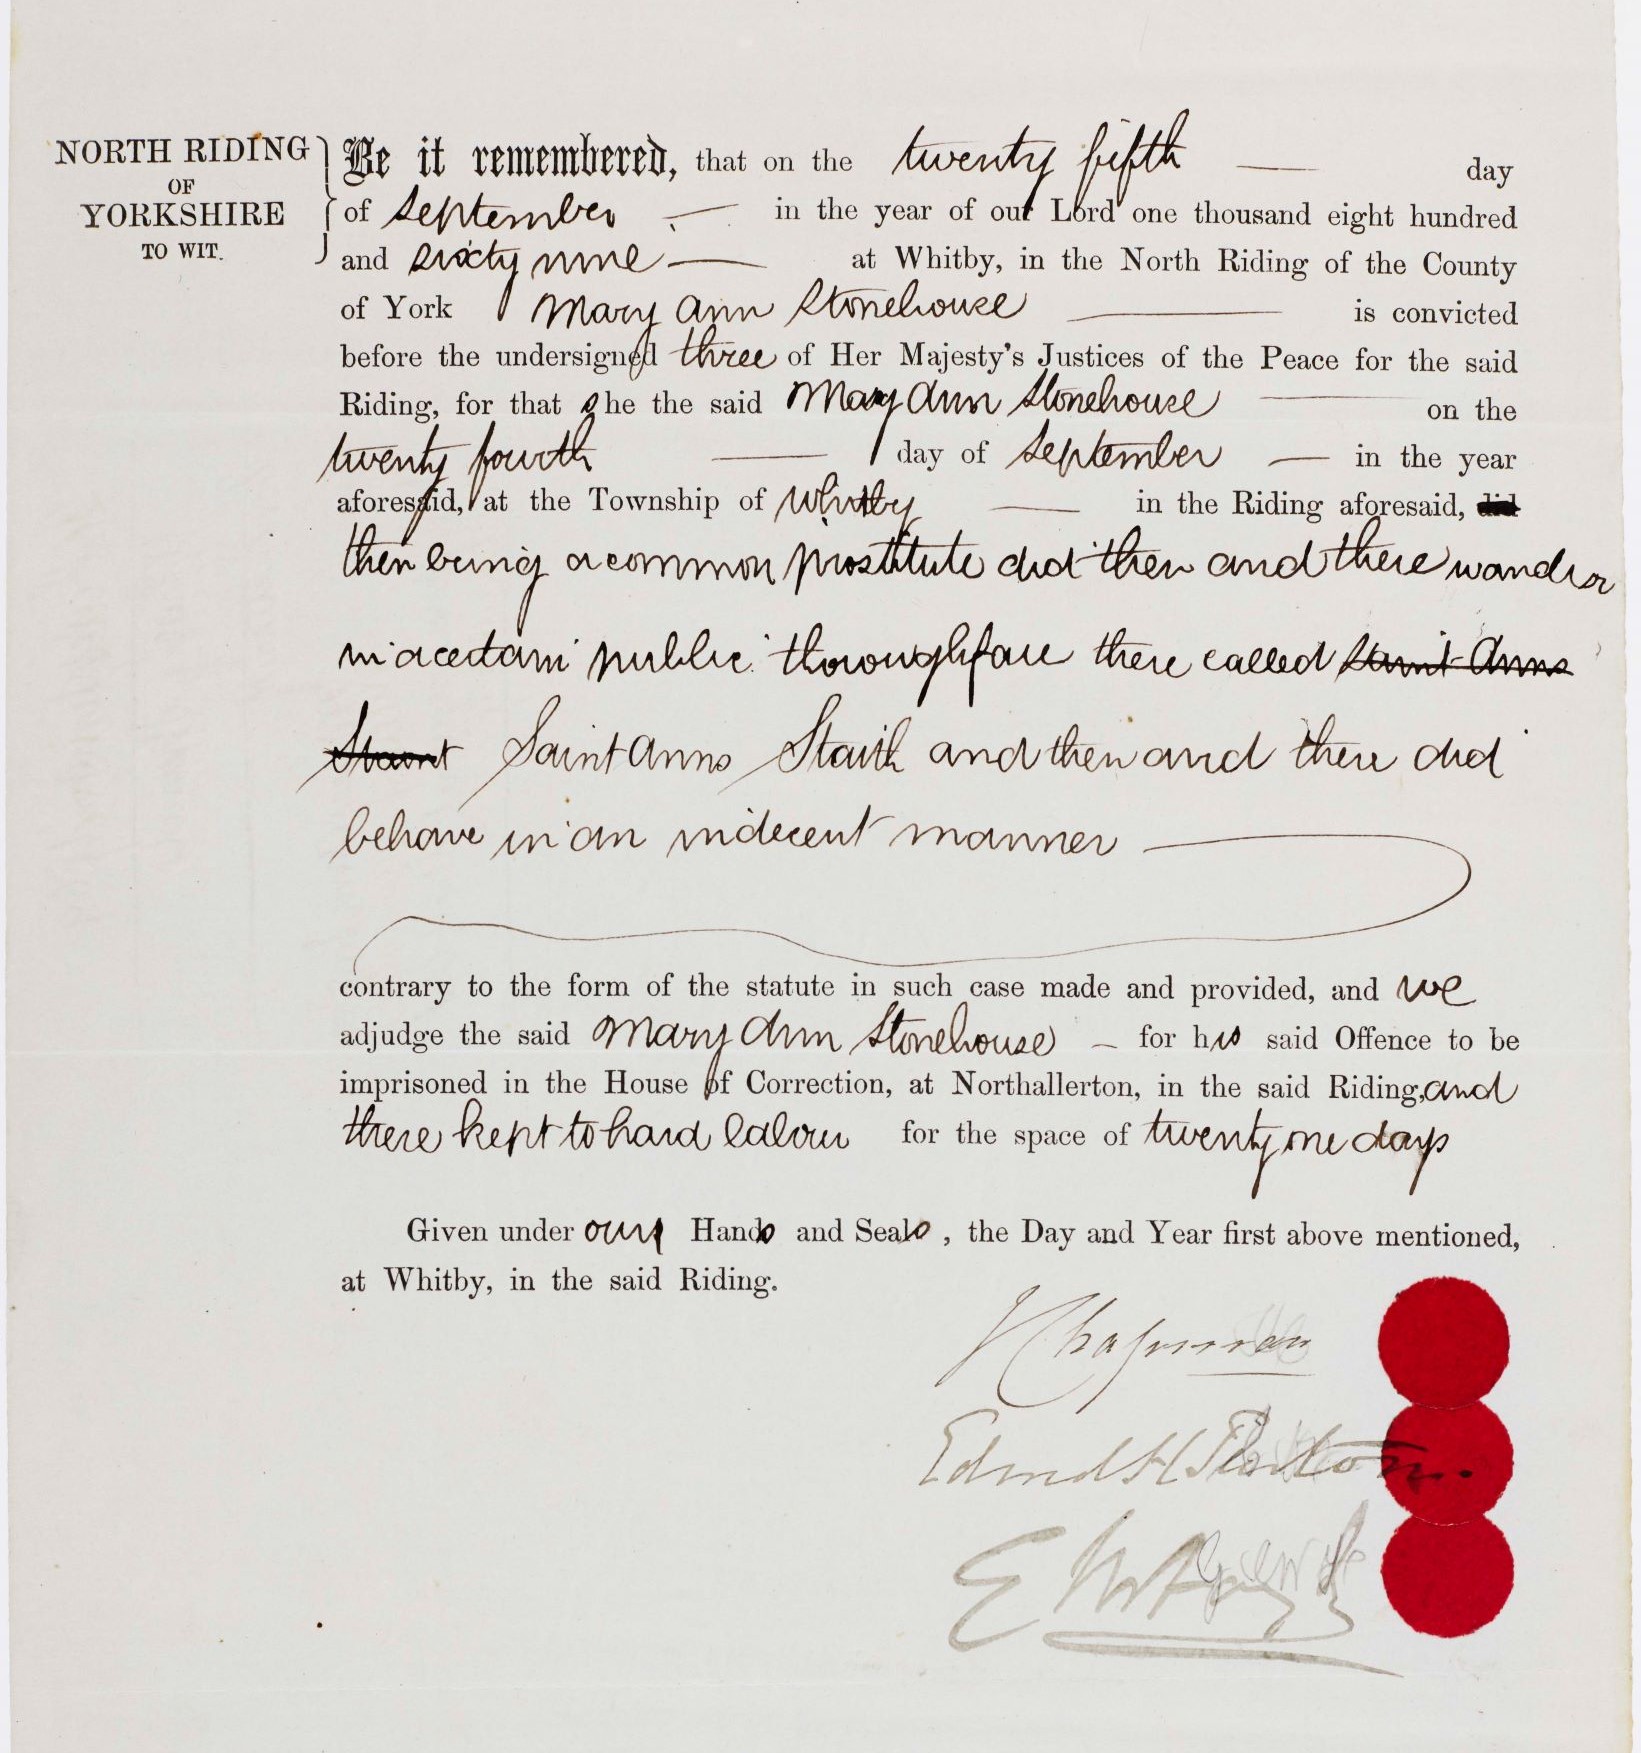 NORTH RIDING
OF
YORKSHIRE
TO WIT.
Be it remembered, that on the twenty fifth — day
of September — in the year of our Lord one thousand eight hundred
and sixty nine — at Whitby, in the North Riding of the County
of York Mary Ann Stonehouse — is convicted
before the undersigned three of Her Majesty's Justices of the Peace for the said
Riding, for that she the said Mary Ann Stonehouse — on the
twenty fourth — day of September — in the year
aforesaid, at the Township of Whitby — in the Riding aforesaid, did
then being a common prostitute did then and there wander
in a certain public thoroughfare there called Saint Anns
Saint Anns Staith and then and there did
behave in an indecent manner —
contrary to the form of the statute in such case made and provided, and we
adjudge the said Mary Ann Stonehouse — for his said Offence to be
imprisoned in the House of Correction, at Northallerton, in the said Riding, and
there kept to hard labour for the space of twenty one days
Given under our Hands and Seals, the Day and Year first above mentioned,
at Whitby, in the said Riding.
Chapman